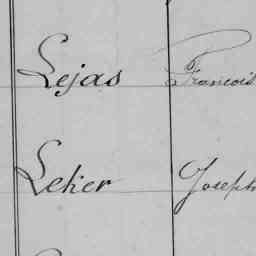 Lejas François
Lekier Joseph